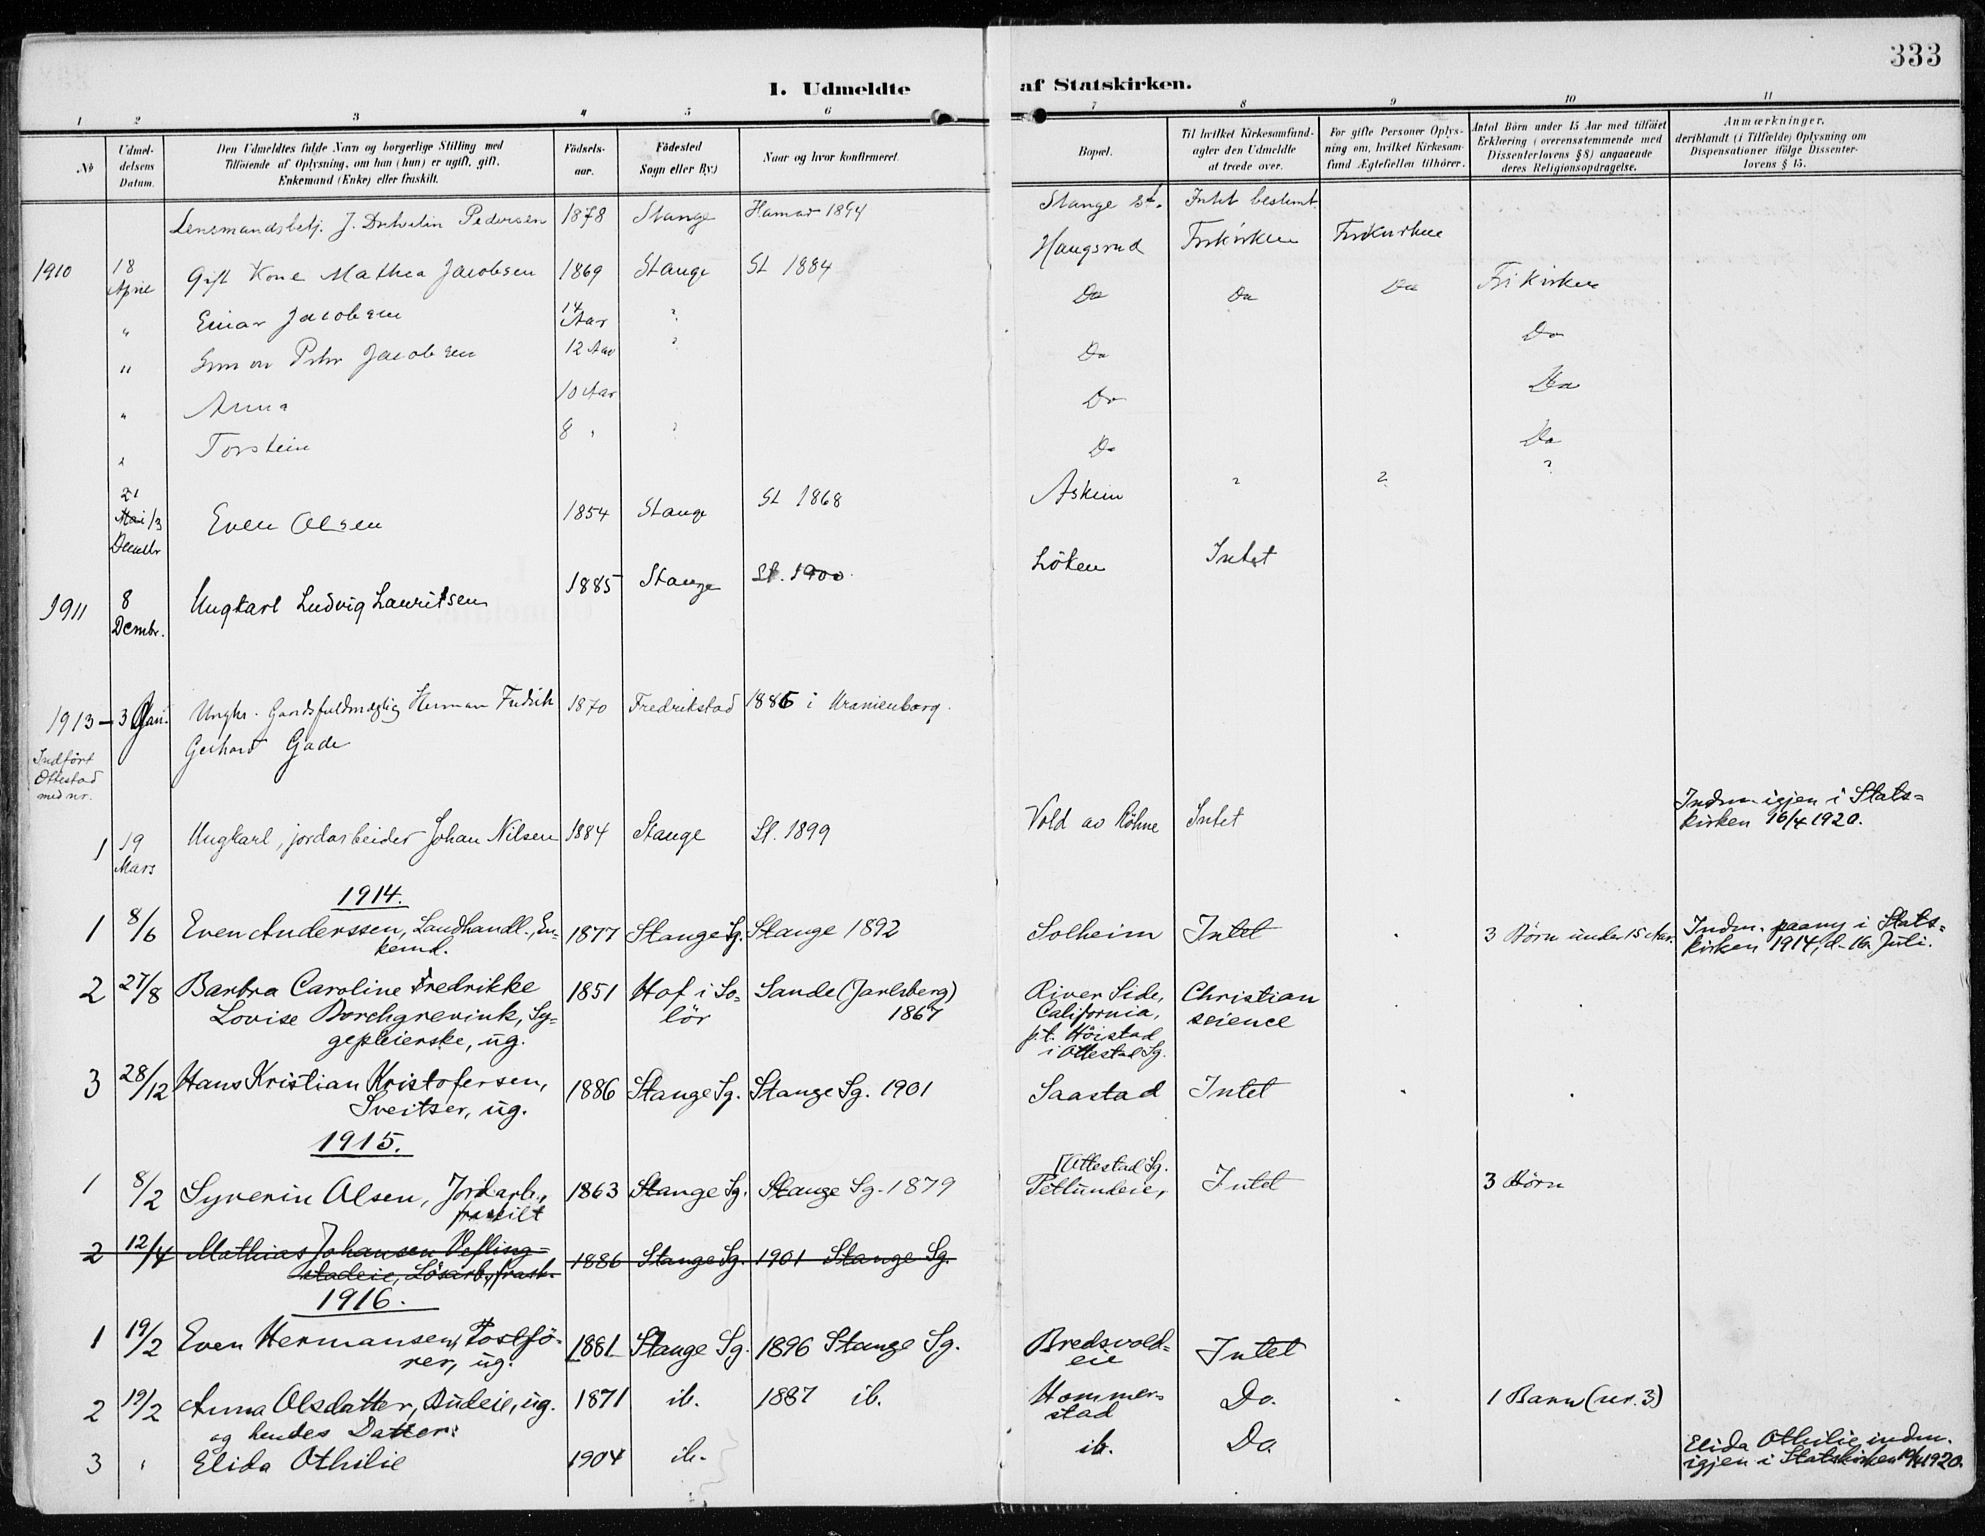 333
I. Udmeldte af Statskirken.
1 2 3 4 5 6 7 8 9 10 11
No
Udmel-
delsens
Datum.
Den Udmeldtes fulde Navn og borgerlige Stilling med
Tilføiende af Oplysning, om han (hun) er ugift, gift,
Enkemand (Enke) eller fraskilt.
Fødsels-
aar.
Fødested
Sogn eller By.)
Naar og hvor konfirmeret.
Bopæl.
Til hvilket Kirkesamfund
agter den Udmeldte
at træde over.
For gifte Personer Oplys-
ning om, hvilket Kirkesam-
fund Ægtefællen tilhører.
Antal Börn under 15 Aar med tilføiet
Erklæring (overensstemmende med
Dissenterlovens § 8) angaaende
deres Religionsopdragelse.
Anmærkninger,
deriblandt (i Tilfælde) Oplysning om
Dispensationer ifølge Dissenter-
lovens § 15.
Lensmandsbetj. J. Pedersen 1878 Stange Hamar 1894 Stange st. Intet bestemt.
1910 18 April Gift Kone Mathea Jacobsen 1869 Stange St 1884 Haugsrud Frikirken Frikirken
" Einar Jacobsen 14 Aar ? Do Do Do Frikirken
" Jacobsen 12 Aar ? Do Do
" Anna 10 Aar Do Do
" Torstein 8 " ? Do Do
21 Mai 13 Decembr Even Olsen 1854 Stange St 1868 Askim ? ? ?
1911 8 Dcembr. Ungkarl Ludvig Lauritsen 1885 Stange St. 1900. Löken Intet
1913 - 3 Jan. Ungkr. Gaardsfuldmægtig Herman Fredrik
Gerhard Gade 1870 Fredrikstad 1886 i Uranienborg.
Indført
Ottestad
med nr.
1 19 Mars Ungkarl, jordarbeider Johan Nilsen 1884 Stange St. 1899 Vold av Röhne Intet
Indm. igjen i Stats=
kirken 16/4 1920.
1914.
1 8/6 Even Anderssen, Landhandl., En-
kemd. 1877 Stange Sg. Stange 1892 Solheim Intet . 3 Börn under 15 Aar.
Indm. paany i Stats=
kirken 1914, d. 16. Juli.
2 27/8 Barbra Caroline Fredrikke
Lovise Borchgrevink, Sy=
gepleierske, ug. 1851 Hof i So=
lör Sande (Jarlsberg)
1867 River Side,
California,
p.t. Höistad
i Ottestad Sg. Christian
science . .
3 28/12 Hans Kristian Kristofersen,
Sveitser, ug. 1886 Stange Sg. Stange Sg. 1901 Saastad Intet . .
1915.
1 8/2 Syverin Olsen, Jordarb.,
fraskilt 1863 Stange Sg. Stange Sg. 1879 Ottestad Sg.
Intet 3 Börn
2 12/4 Mathias Johansen Vefling=
stadeie, Lösarb., frask. 1886 Stange Sg. 1901 Stange Sg.
1916.
1 19/2 Even Hermansen, Postfö-
rer, ug. 1881 Stange Sg. 1896 Stange Sg. Bredsvold=
eie Intet
2 19/2 Anna Olsdatter, Budeie, ug.
og hendes Datter: 1871 ib. 1887 ib. Hommer=
stad Do. . 1 Barn (nr. 3)
3 " Elida Othilie 1904 ib. ib. Do
Elida Othilie indm.
igjen i Statskirken 1920.